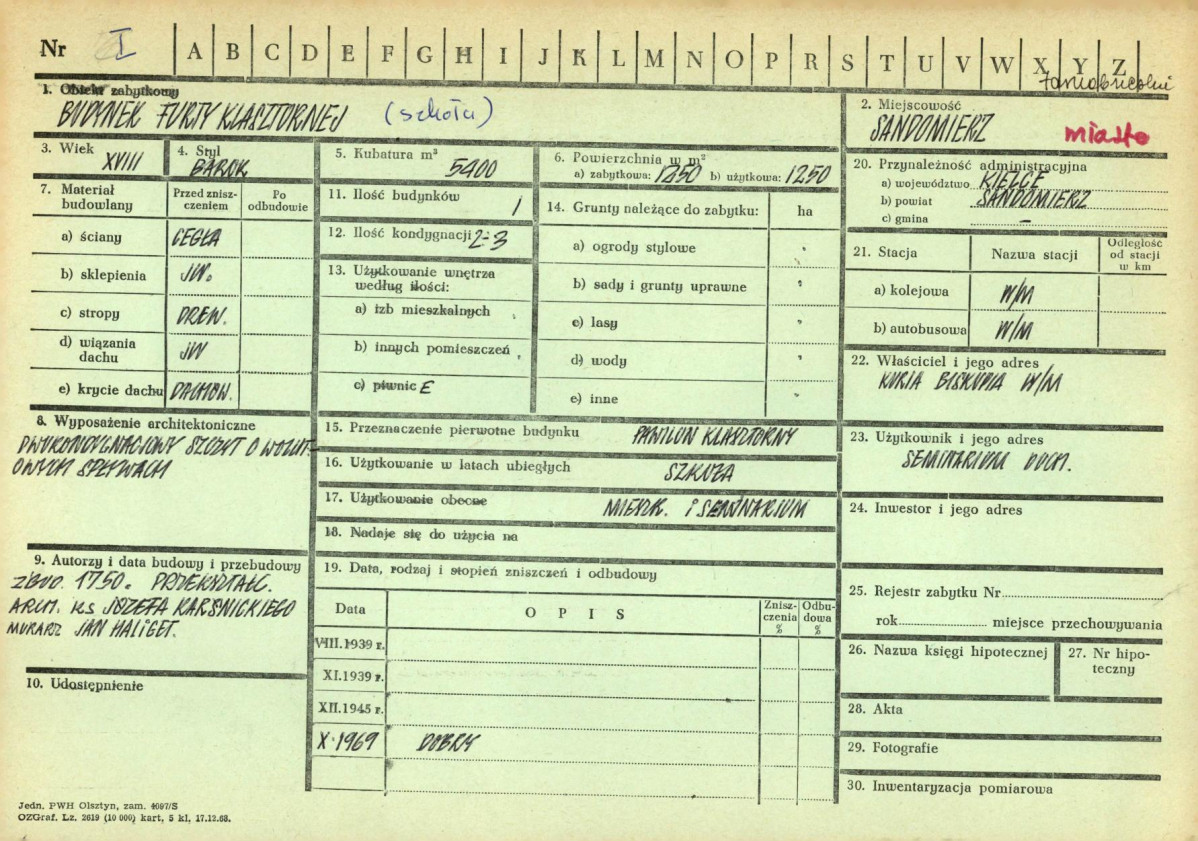 Nr I A B C D E F G H I J K L M N O P R S T U V W X Y Z
1. Obiekt zabytkowy
BUDYNEK FURTY KLASZTORNEJ (szkoła)
2. Miejscowość
SANDOMIERZ miasto
3. Wiek XVIII
4. Styl BAROK
5. Kubatura m³ 5400
6. Powierzchnia w m²
a) zabytkowa: 1250 b) użytkowa: 1250
7. Materiał budowlany
Przed zniszczeniem
Po odbudowie
a) ściany CEGŁA
b) sklepienia JW.
c) stropy DREW.
d) wiązania dachu JW
e) krycie dachu DACHÓW.
8. Wyposażenie architektoniczne
DWUKONDYGNACJOWY SZCZYT O WOLUT-
OWYCH SPŁYWACH
9. Autorzy i data budowy i przebudowy
ZBUD. 1750. PRZEKSZTAŁC.
ARCH. ks JÓZEFA KARSNICKIEGO
MURARZ JAN HALIGET.
10. Udostępnienie
11. Ilość budynków 1
12. Ilość kondygnacji 2-3
13. Użytkowanie wnętrza
według ilości:
a) izb mieszkalnych
b) innych pomieszczeń
c) piwnic E
14. Grunty należące do zabytku: ha
a) ogrody stylowe
b) sady i grunty uprawne
c) lasy
d) wody
e) inne
15. Przeznaczenie pierwotne budynku PAWILON KLASZTORNY
16. Użytkowanie w latach ubiegłych SZKOŁA
17. Użytkowanie obecne MIESZK. i SEMINARIUM
18. Nadaje się do użycia na
19. Data, rodzaj i stopień zniszczeń i odbudowy
Data OPIS Zniszczenia % Odbudowa %
VIII.1939 r.
XI.1939 r.
XII.1945 r.
X 1969 DOBRY
20. Przynależność administracyjna
a) województwo KIELCE
b) powiat SANDOMIERZ
c) gmina –
21. Stacja Nazwa stacji Odległość od stacji w km
a) kolejowa W/M
b) autobusowa W/M
22. Właściciel i jego adres
KURIA BISKUPIA W/M
23. Użytkownik i jego adres
SEMINARIUM DUCH.
24. Inwestor i jego adres
25. Rejestr zabytku Nr
rok miejsce przechowywania
26. Nazwa księgi hipotecznej
27. Nr hipoteczny
28. Akta
29. Fotografie
30. Inwentaryzacja pomiarowa
Jedn. PWH Olsztyn, zam. 4097/S
OZGraf. Lz. 2619 (10 000) kart, 5 kl. 17.12.68.